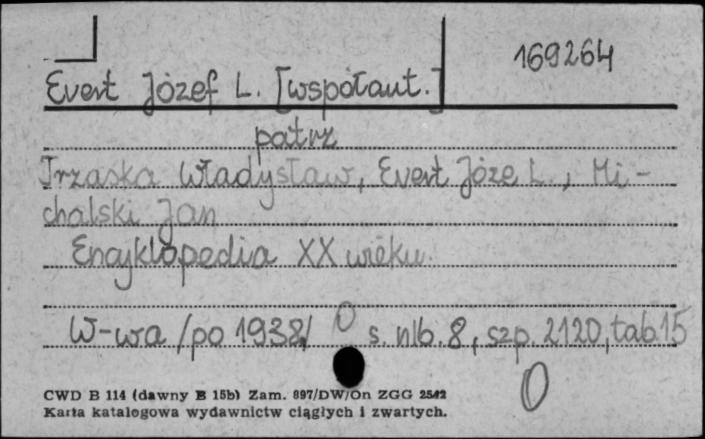 169264
Evert Józef L. [współaut.]
patrz
Trzaska Władysław, Evert Józe L., Mi-
chalski Jan
Encyklopedia XX wieku
W-wa /po 1938/ s. nlb. 8, szp. 2120, tab. 15
CWD B 114 (dawny B 15b) Zam. 897/DW/On ZGG 2542
Karta katalogowa wydawnictw ciągłych i zwartych.